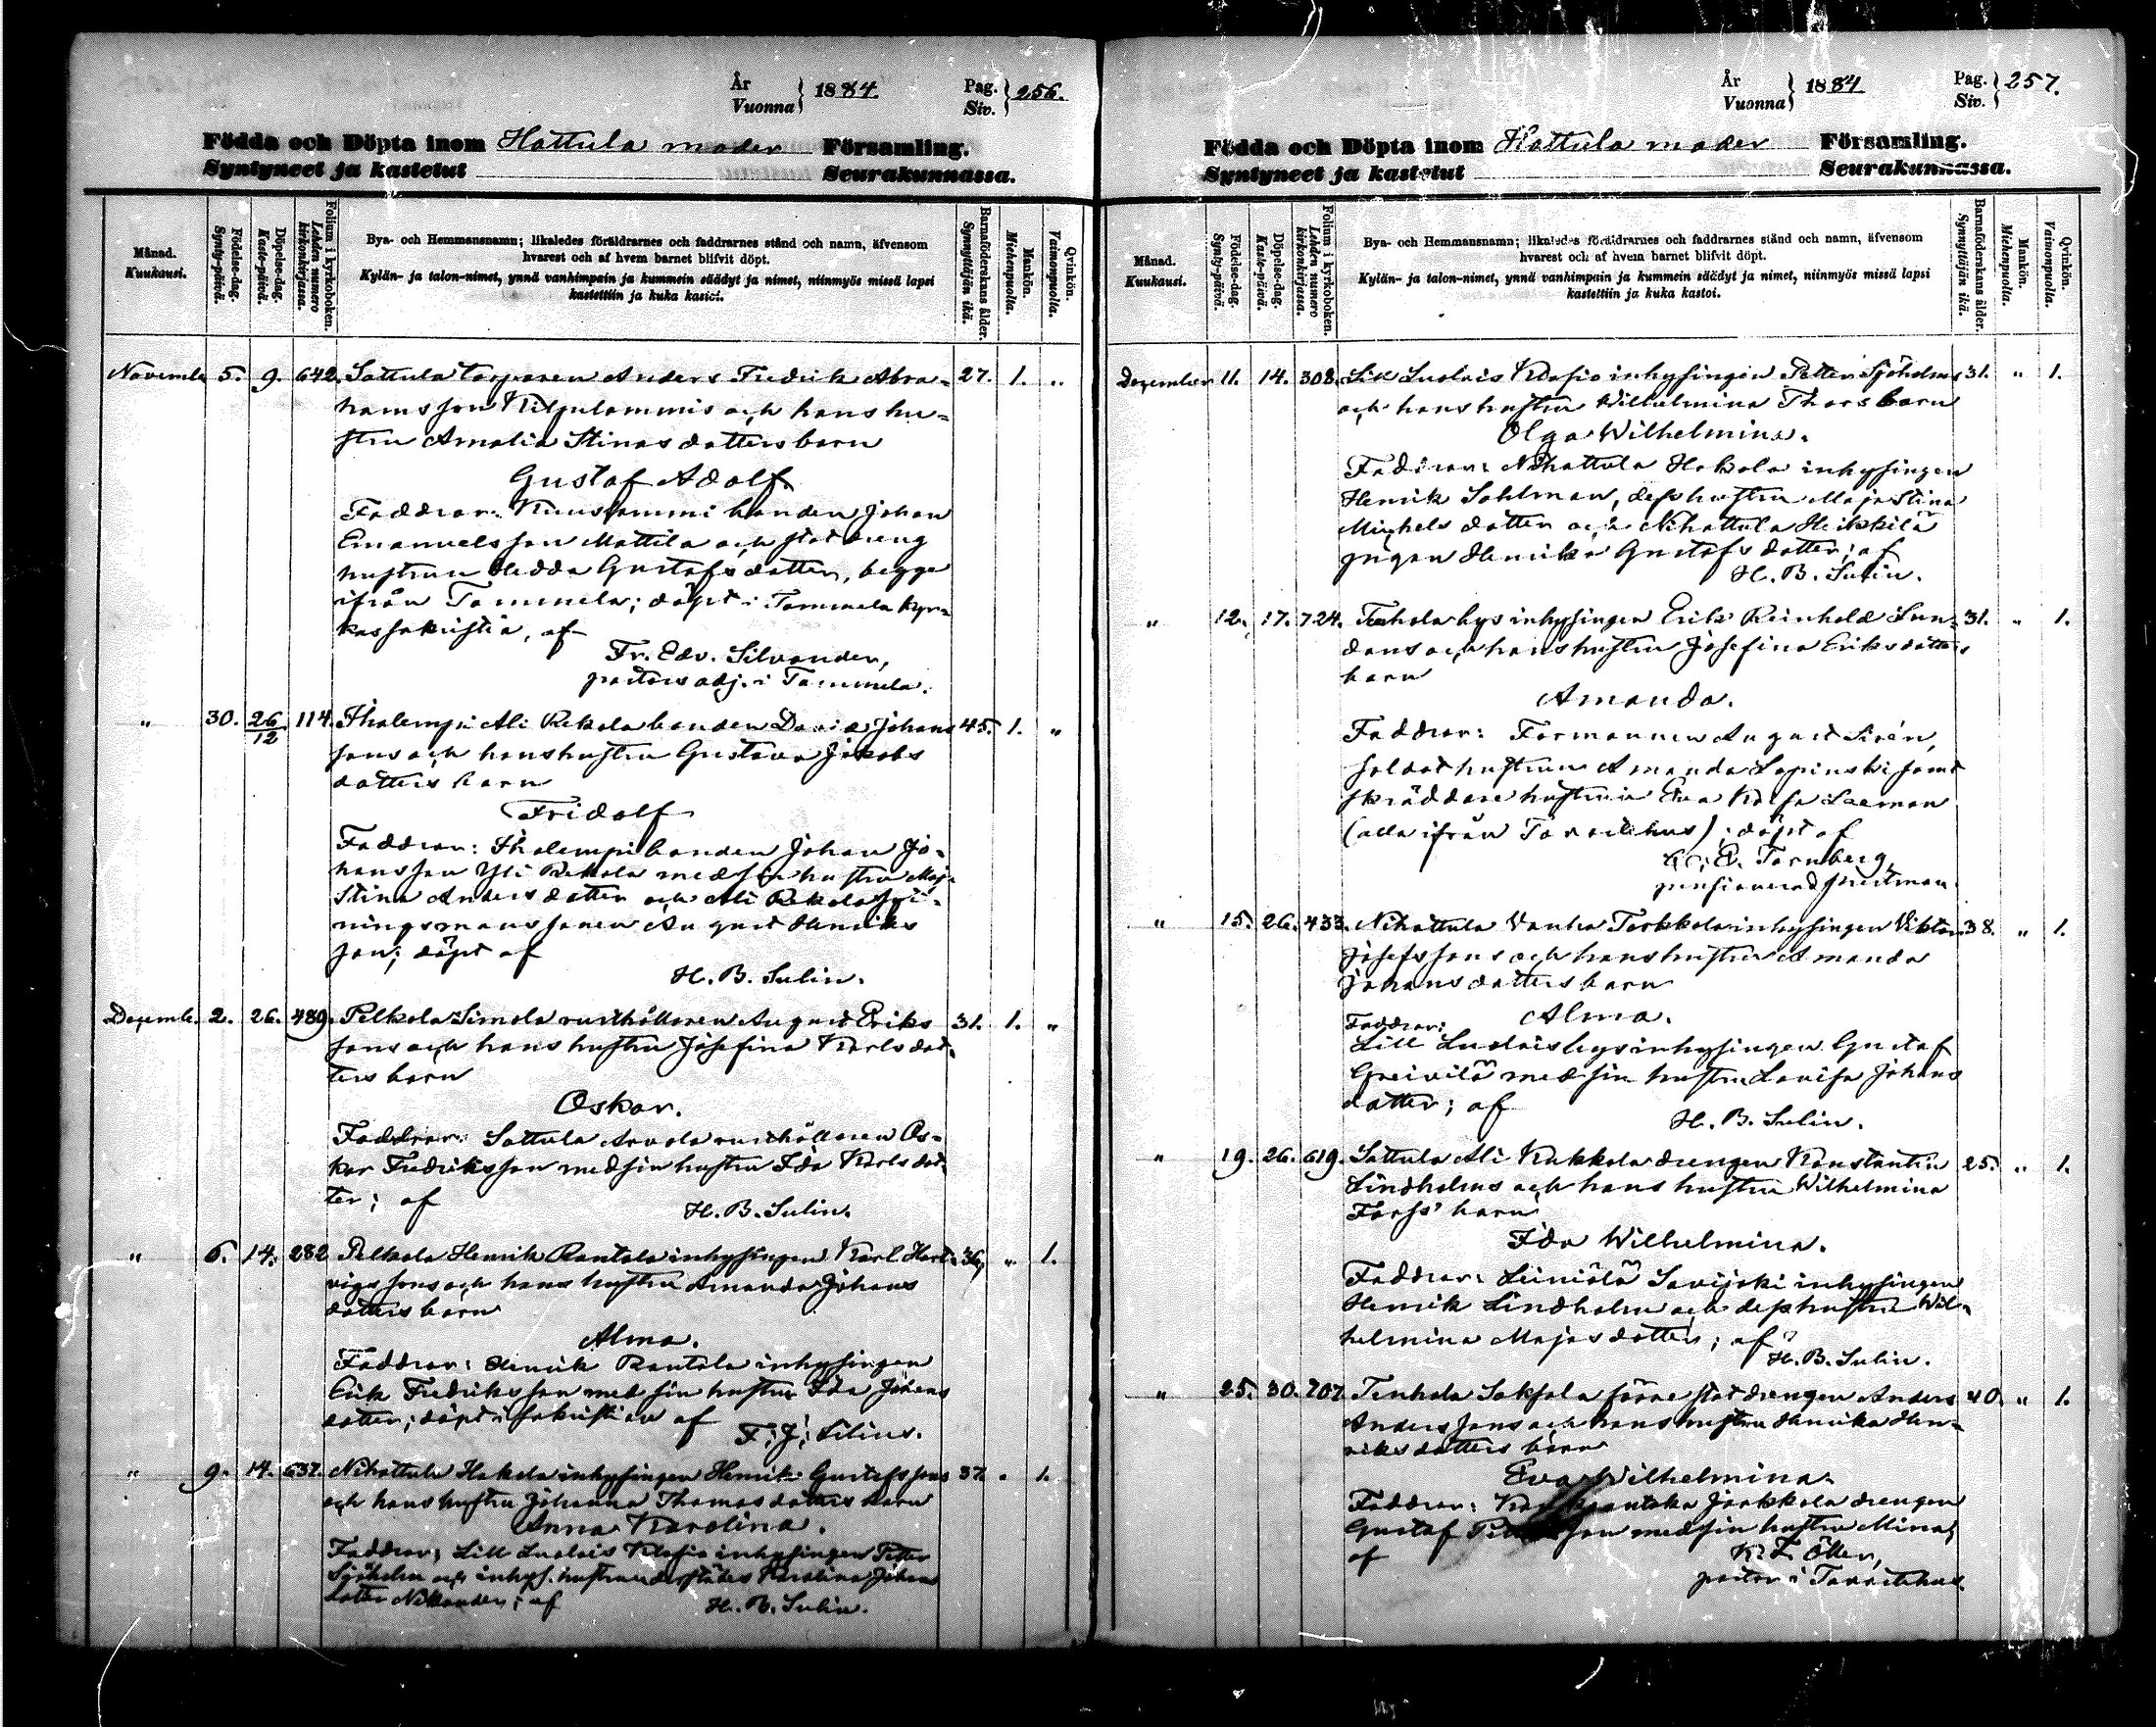 År
Vuonna } 1884.
Pag.
Siv. } 256.
Födda och Döpta inom Hattula moder Församling.
Syntyneet ja kastetut Seurakunnassa.
Månad.
Kuukausi.
Födelse-dag.
Synty-päivä.
Döpelse-dag.
Kaste-päivä.
Folium i kyrkoboken.
Lehden numero kirkonkirjassa.
Bya- och Hemmansnamn; likaledes föräldrarnes och faddrarnes stånd och namn, äfvensom
hvarest och af hvem barnet blifvit döpt.
Kylän- ja talon-nimet, ynnä vanhimpain ja kummein säädyt ja nimet, niinmyös missä lapsi
kastettiin ja kuka kastoi.
Barnaföderskans ålder.
Synnyttäjän ikä.
Mankön.
Miehenpuolta.
Qvinkön.
Vaimonpuolta.
Novemb. 5. 9. 642. Sattula torparen Anders Fredrik Abra- 27. 1. "
hamsson Kilpilammis och hans hu-
stru Amalia Stinas dotters barn
Gustaf Adolf.
Faddrar: Kuusjammi bonden Johan
Emanuelsson Mattila och statdreng
hustrun Hedda Gustafsdotter, begge
ifrån Tammela; döpt i Tammela kyr-
kas sakristia, af
Fr. Edv. Silvander,
pastors adj. i Tammela.
" 30. 26/12 114. Ihalempi Ali Rekola bonden David Johans 45. 1. "
sons och hans hustru Gustava Jakobs
dotters barn
Fridolf
Faddrar: Ihalempi bonden Johan Jo-
hansson Yli Rekola med sin hustru Maj-
Stina Andersdotter och Ali Rekola
ningsmans sonen August Henriks
son; döpt af
H. B. Sulin.
Dezemb. 2. 26. 489. Pelkola Simola rusthållaren August Eriks 31. 1. "
sons och hans hustru Josefina Karlsdot-
ters barn
Oskar.
Faddrar: Sattula Arvola rusthållaren Os-
kar Fredriksson med sin hustru Ida Karlsdot-
ter; af
H. B. Sulin.
" 6. 14. 282 Pelkola Henrik Rantala inhysingen Karl Hart- 36, " 1.
vigs sons och hans hustru Amanda Johans
dotters barn
Alma.
Faddrar: Henrik Rantala inhysingen
Erik Fredriksson med sin hustru Ida Johans
dotter; döpt i sakristian af
F. J. Lilius.
" 9. 14. 637. Nihattula Hakola inhysingen Henrik Gustafssons 37. " 1.
och hans hustru Johanna Thomasdotters barn
Anna Karolina.
Faddrar: Lill Luolais Klasio inhysingen Petter
Sjöholm och inhys. hustrun derstädes Karolina Johans
dotter Nikander; af
H. B. Sulin.
År
Vuonna } 1884
Pag.
Siv. } 257.
Födda och Döpta inom Hattula moder Församling.
Syntyneet ja kastetut Seurakunnassa.
Månad.
Kuukausi.
Födelse-dag.
Synty-päivä.
Döpelse-dag.
Kaste-päivä.
Folium i kyrkoboken.
Lehden numero kirkonkirjassa.
Bya- och Hemmansnamn; likaledes föräldrarnes och faddrarnes stånd och namn, äfvensom
hvarest och af hvem barnet blifvit döpt.
Kylän- ja talon-nimet, ynnä vanhimpain ja kummein säädyt ja nimet, niinmyös missä lapsi
kastettiin ja kuka kastoi.
Barnaföderskans ålder.
Synnyttäjän ikä.
Mankön.
Miehenpuolta.
Qvinkön.
Vaimonpuolta.
Dezember 11. 14. 308. Luolais Klasio inhysingen Petter Sjöholms 31. " 1.
och hans hustru Wilhelmina Thors barn
Olga Wilhelmina.
Faddrar: Nihattula Hakola inhysingen
Henrik Sahlman, dess hustru Maja Stina
Michelsdotter och Nihattula Heikkilä
pigan Henrika Gustafsdotter; af
H. B. Sulin.
" 12. 17. 724. Tenhola bys inhysingen Erik Reinhold Sun- 31. " 1.
dans och hans hustru Josefina Eriksdotters
barn
Amanda.
Faddrar: Formannen August Sirén,
soldat hustrun Amanda Lapinski samt
skräddare hustrun Eva Kaisa
(alla ifrån Tavastehus); döpt af
Tornberg,
pensionerad prestman.
" 15. 26. 433. Nihattula Vanha Torkkola inhysingen Viktor 38. " 1.
Josefssons och hans hustru Amanda
Johansdotters barn
Alma.
Faddrar:
Lill Luolais bys inhysingen Gustaf
med sin hustru Lovisa Johans
dotter; af
H. B. Sulin.
" 19. 26. 619. Sattula Ali Kukkola drengen Konstantin 25. " 1.
Lindholms och hans hustru Wilhelmina
Forss' barn
Ida Wilhelmina.
Faddrar: Leiniälä Savijoki inhysingen
Henrik Lindholm och dess hustru Wil-
helmina Majasdotter; af
H. B. Sulin.
" 25. 30. 707. Tenhola Saksala förre statdrengen Anders 40. " 1.
Anderssons och hans hustru Henrika Hen-
riksdotters barn
Eva Wilhelmina.
Faddrar: Jaakkola drengen
Gustaf med sin hustru Mina;
af
K. L. Öller,
pastor i Tavastehus.